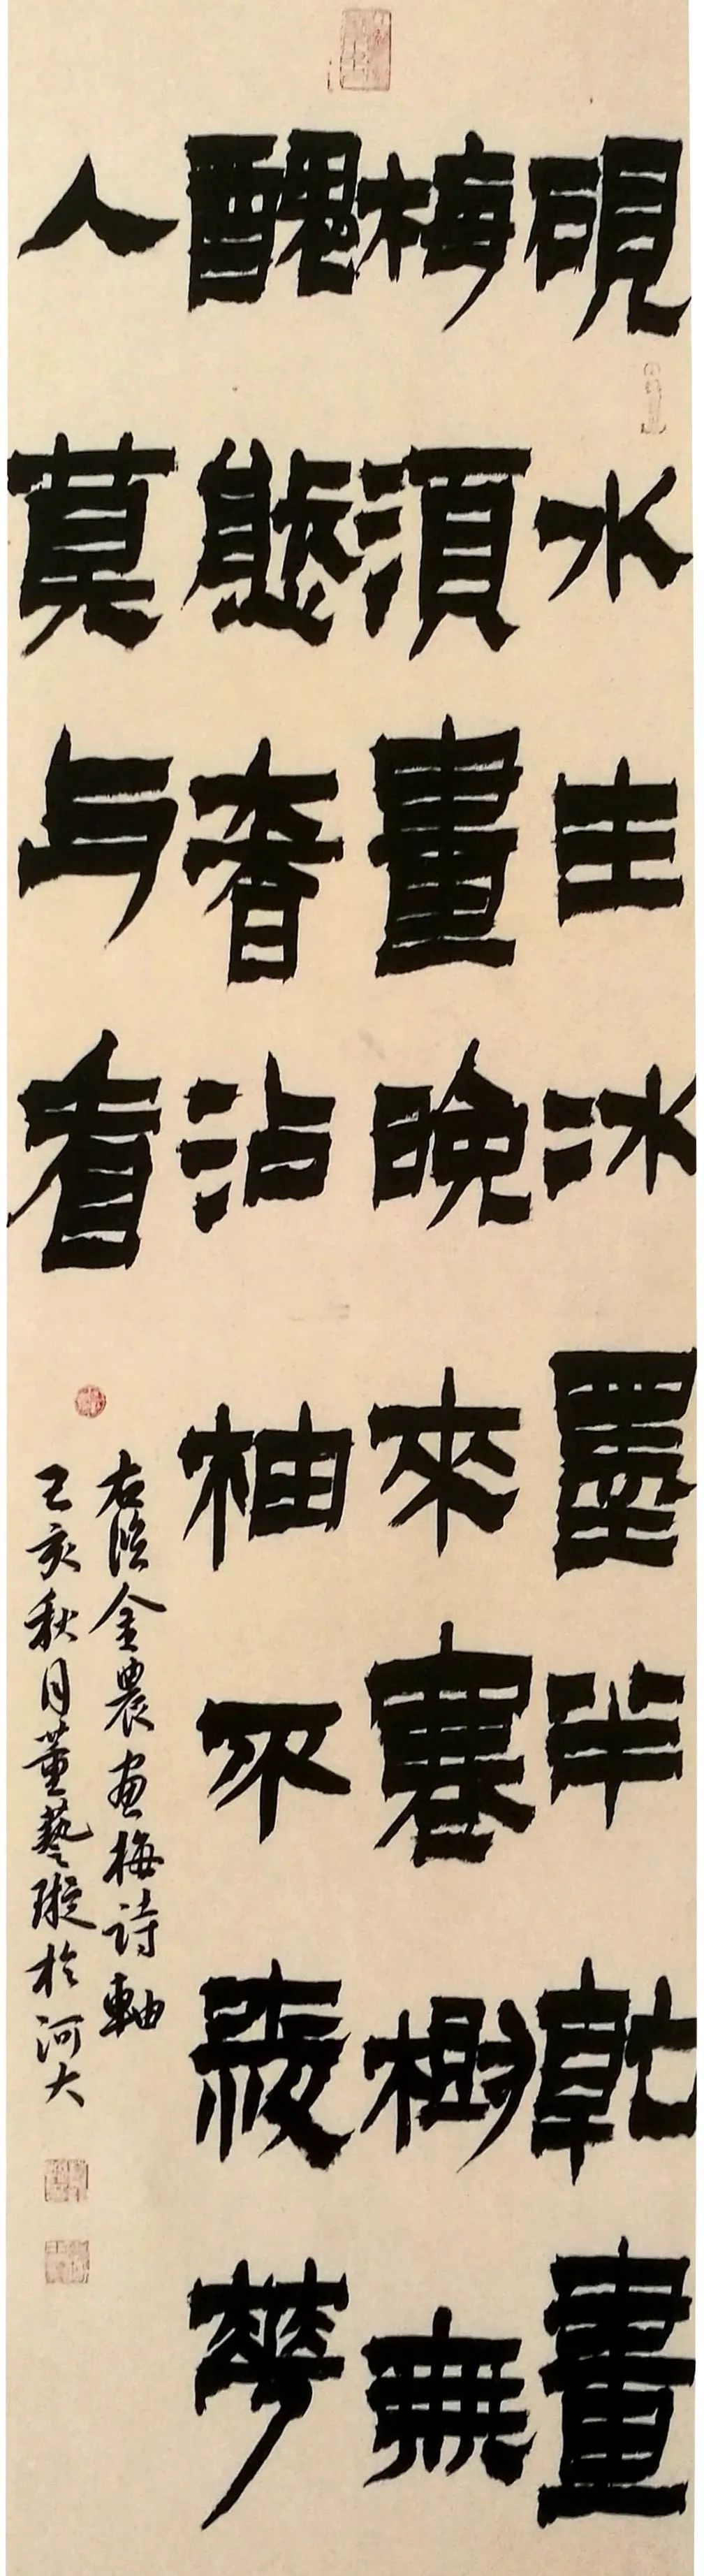 硯水生冰墨半乾畫
梅須畫晚來寒樹無
醜態香沾袖不愛華
人莫与看
右臨金農画梅詩軸
己亥秋月董藝璇於河大